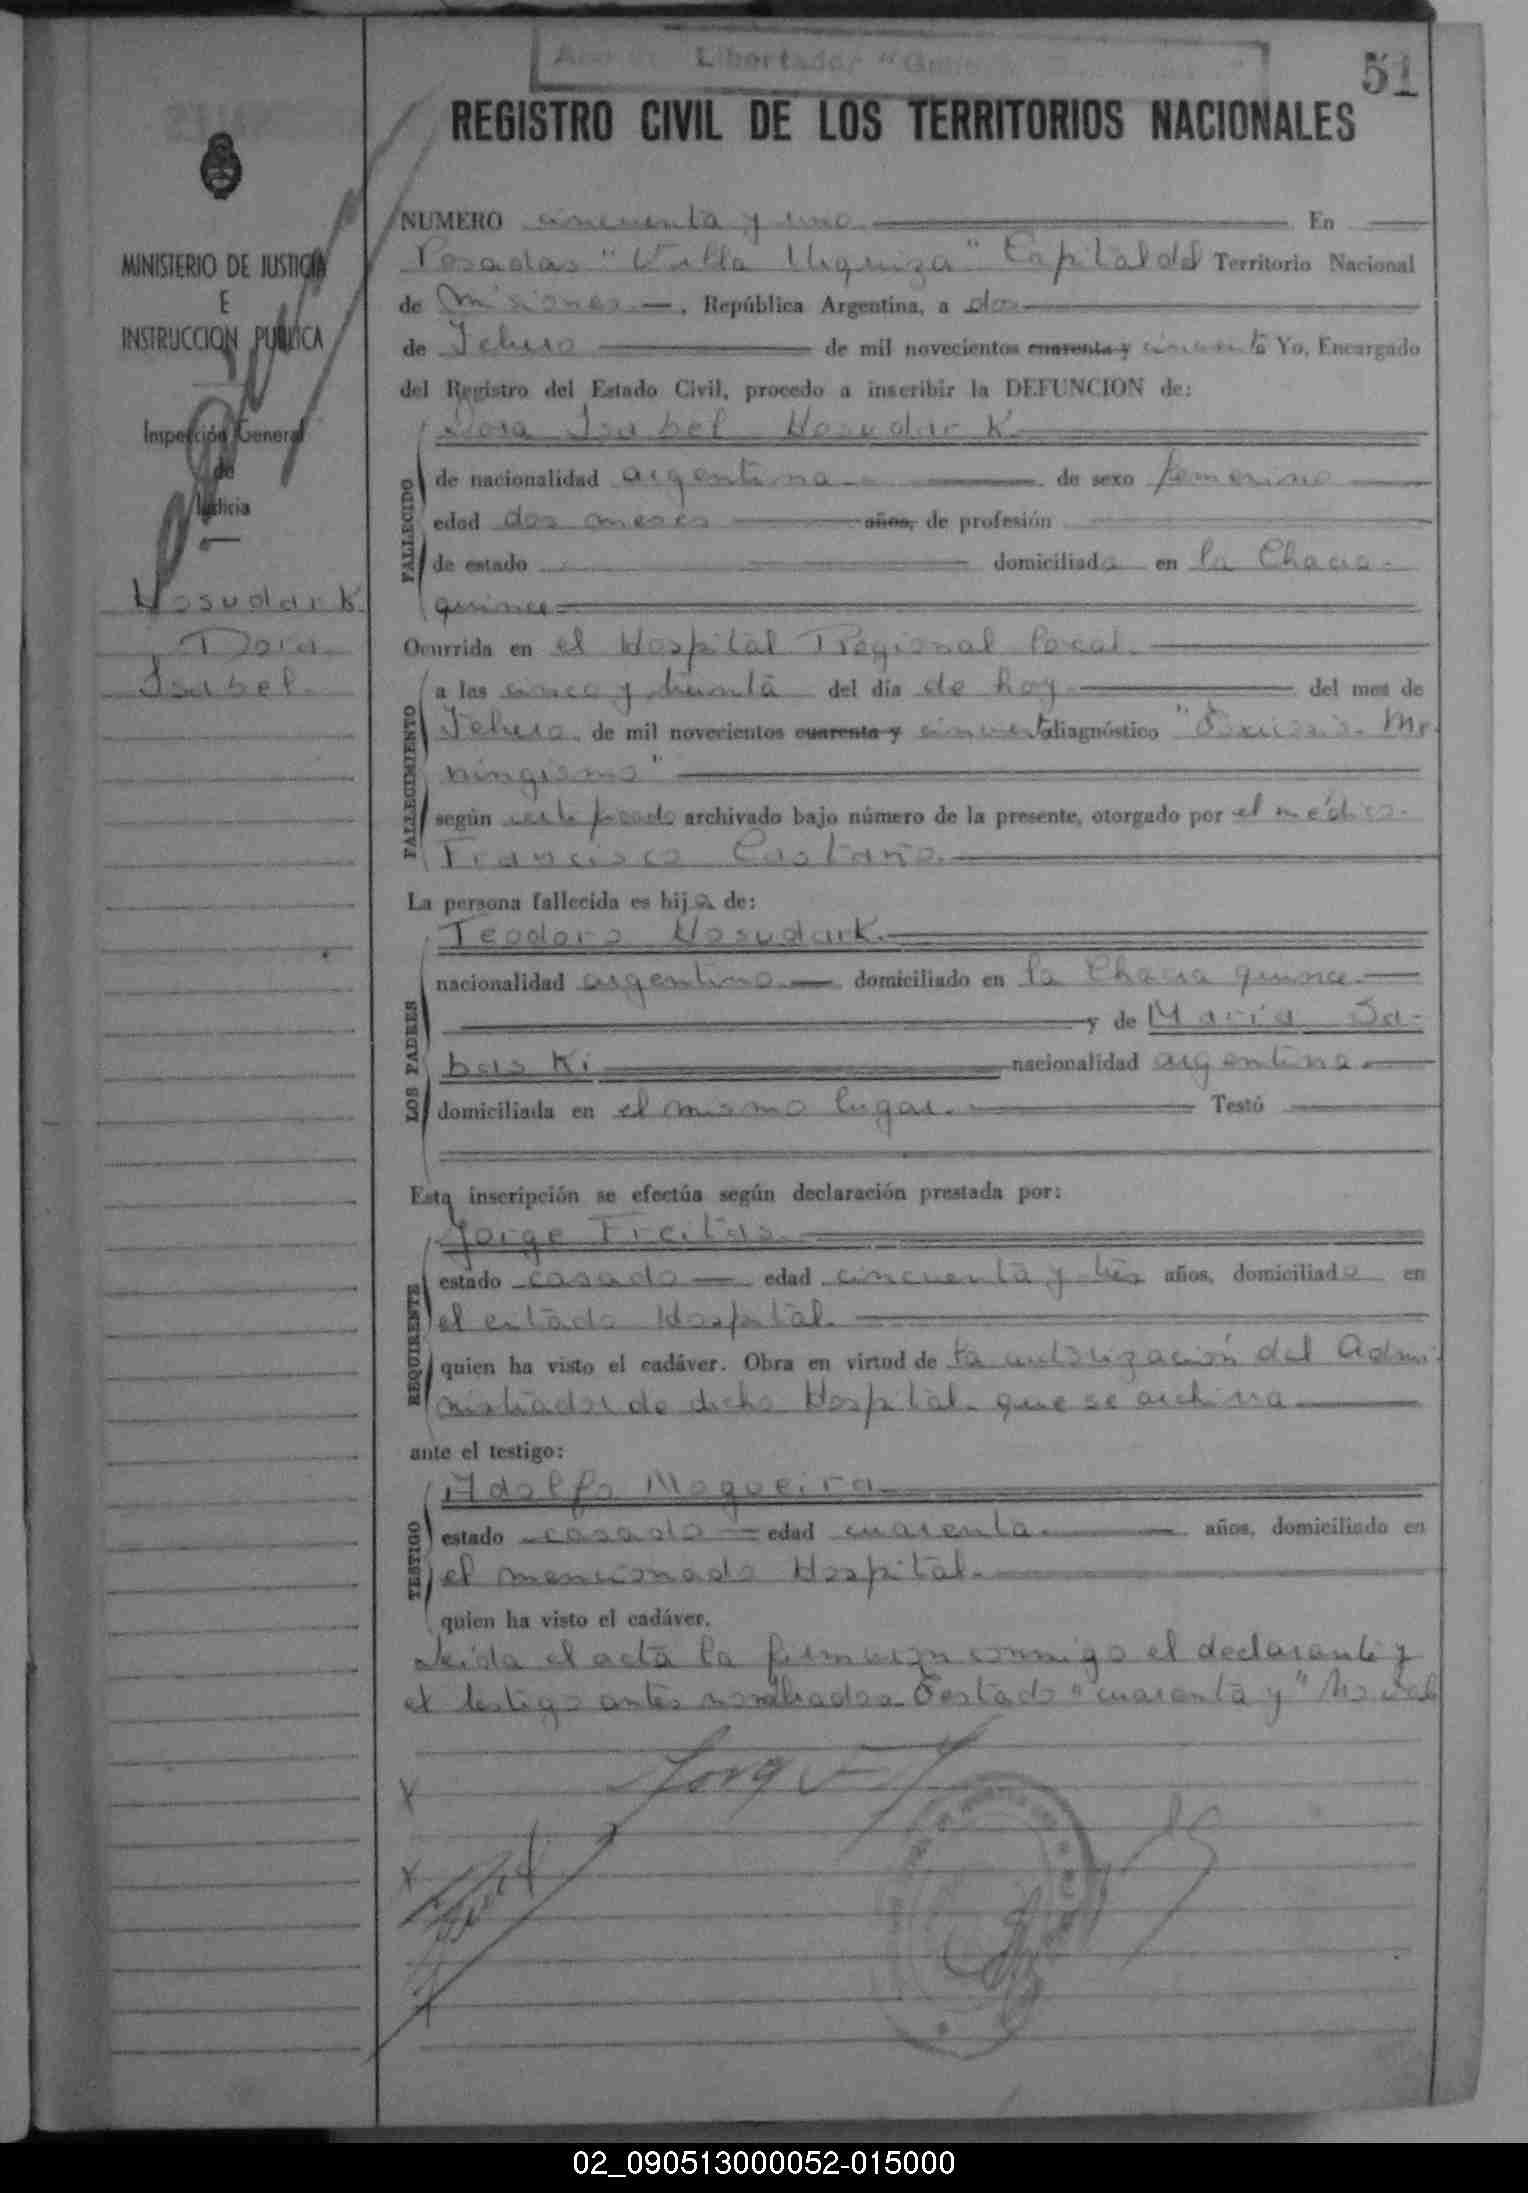 Libertador
51
REGISTRO CIVIL DE LOS TERRITORIOS NACIONALES
MINISTERIO DE JUSTICIA
E
INSTRUCCION PUBLICA
Inspección General
de
Justicia
Hosudark
Dora
Isabel.
NUMERO cincuenta y uno En
Posadas "Villa Urquiza" Capital del Territorio Nacional
de Misiones, República Argentina, a dos
de Febrero de mil novecientos cuarenta y cincuenta Yo, Encargado
del Registro del Estado Civil, procedo a inscribir la DEFUNCION de:
FALLECIDO
Dora Isabel Hosudark
de nacionalidad argentina de sexo femenino
edad dos meses años, de profesión
de estado domiciliada en la Chacra
quince
Ocurrida en el Hospital Regional local.
FALLECIMIENTO
a las cinco y treinta del día de hoy del mes de
Febrero de mil novecientos cuarenta y cincuenta diagnóstico "Toxicosis. Me-
ningismo"
según certificado archivado bajo número de la presente, otorgado por el médico
Francisco Castaño.
La persona fallecida es hija de:
LOS PADRES
Teodoro Hosudark.
nacionalidad argentino domiciliado en la Chacra quince
y de Maria Sa-
baski nacionalidad argentina
domiciliada en el mismo lugar. Testó
Esta inscripción se efectúa según declaración prestada por:
REQUIRENTE
Jorge Freitas
estado casado edad cincuenta y tres años, domiciliado en
el citado Hospital.
quien ha visto el cadáver. Obra en virtud de la autorización del Admi-
nistrador de dicho Hospital que se archiva
ante el testigo:
TESTIGO
Adolfo Nogueira
estado casado edad cuarenta años, domiciliado en
el mencionado Hospital.
quien ha visto el cadáver.
Leida el acta la firmaron conmigo el declarante y
el testigo antes nombrados. Testado "cuarenta y" No vale
02_090513000052-015000